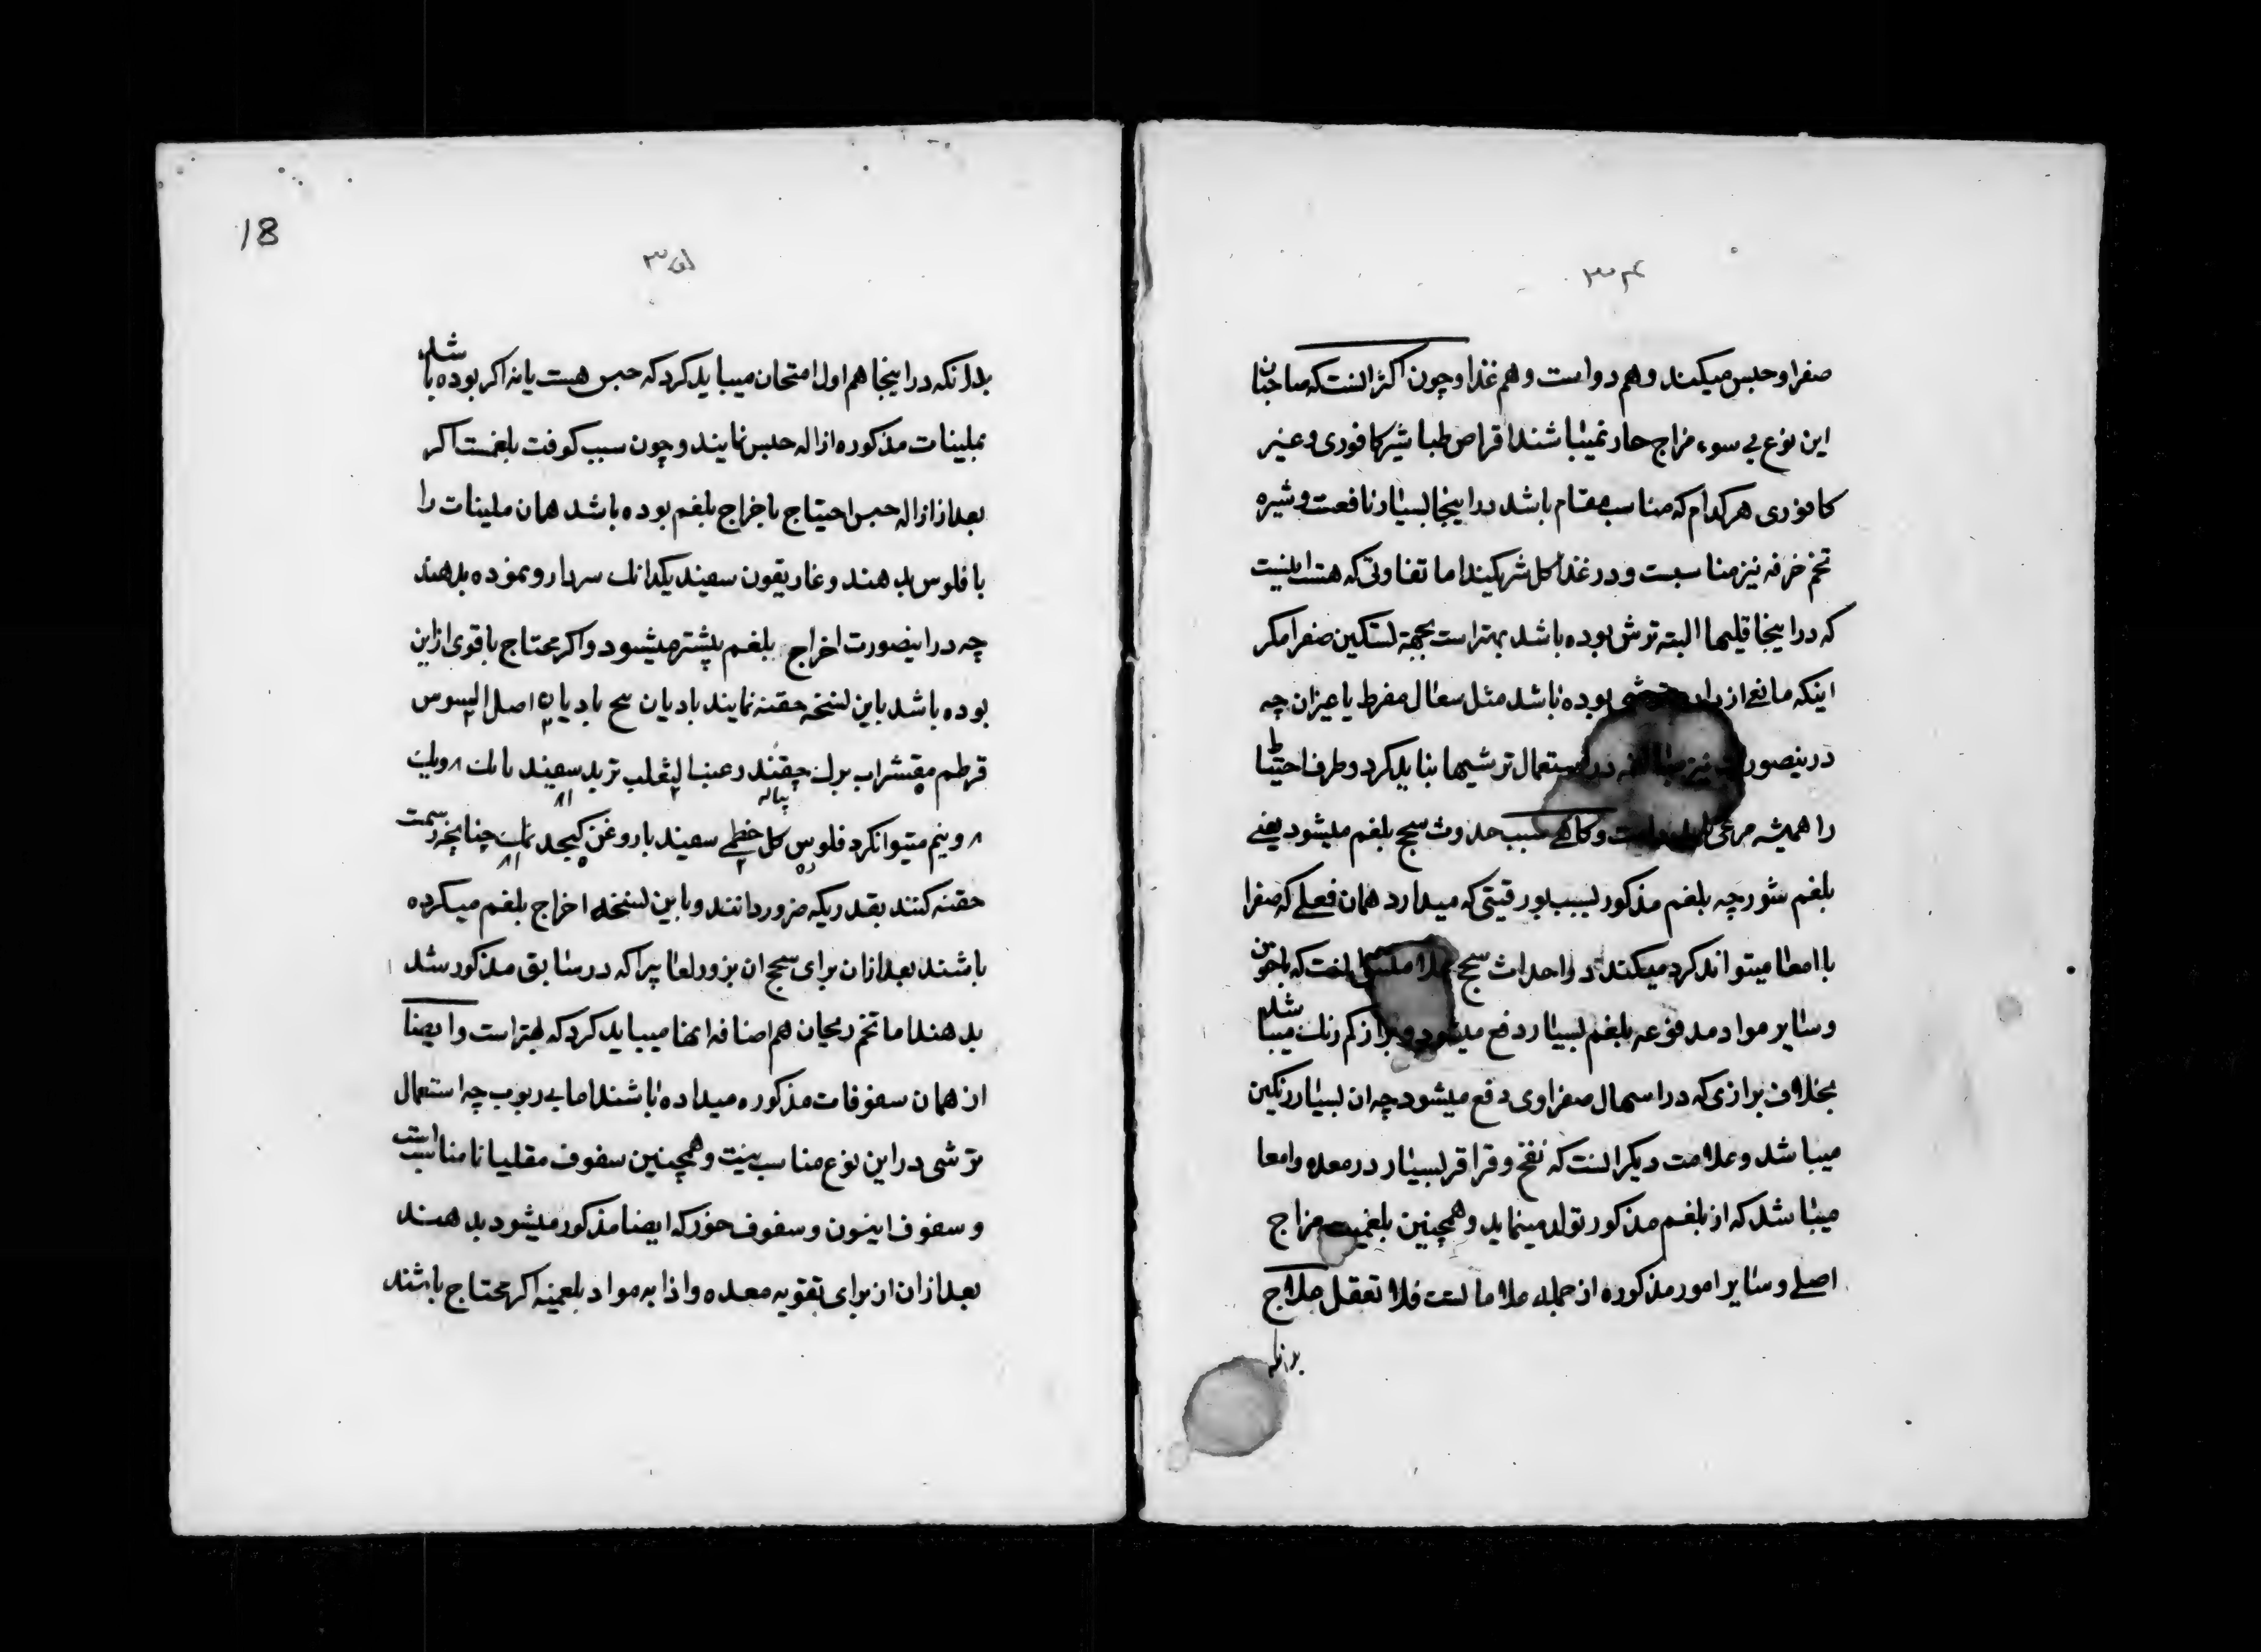 ۳۴
صفرا و حبس میکند و هم دواست و هم غذا و چون اکثر انست که صاحبان
این نوع بی سوء مزاج حار نمیباشند اقراص طباشیر کافوری و غیر
کافوری هر کدام که مناسب مقام باشد در اینجا بسیار نافعست و شیره
تخم خرفه نیز مناسبست و در غذا کل شریکیند اما تفاوتی که هست اینست
که در اینجا قلیها البته ترش بوده باشد بهتر است بجهة تسکین صفرا مکر
اینکه مانعی از بوده باشد مثل سعال مفرط یا غیر ان چه
در ینصورت نیز استعمال ترشیها بناید کرد و طرف احتیاط
را همیشه مرعی و کاهی سبب حدوث سحج بلغم میشود یعنی
بلغم شور چه بلغم مذکور بسبب بورقیتی که میدارد همان فعلی که صفرا
با امعا میتواند کرد میکند در احداث سحج که با خون
و سایر مواد مدفوعه بلغم بسیار دفع میشود و براز کم رنک میباشد
بخلاف برازی که در اسهال صفراوی دفع میشود چه ان بسیار رنکین
میباشد و علامت دیکر انست که نفخ و قراقر بسیار در معده و امعا
میباشد که از بلغم مذکور تولد مینماید و همچنین بلغمیت مزاج
اصلی و سایر امور مذکوره از جمله علاماتست فلا تغفل علاج
بدانکه
18
۳۵
بدانکه در اینجا هم اول امتحان میباید کرد که حبس هست یا نه اکر بوده باشد
بملینات مذکوره ازاله حبس نمایند و چون سبب کوفت بلغمست اکر
بعد از ازاله حبس احتیاج باخراج بلغم بوده باشد همان ملینات را
با فلوس بدهند و غاریقون سفید یکدانک سردارو نموده بدهند
چه در اینصورت اخراج بلغم بیشتر میشود و اکر محتاج باقوی از این
بوده باشد باین نسخه حقنه نمایند بادیان بیح بادیان اصل السوس
قرطم مقشر اب برك چقندر عنب الثعلب تربد سفید
و نیم میتوانکرد فلوس کل خطمی سفید با روغن کنجد نمك چنانچه رسمست
حقنه کنند بقدریکه ضرور دانند و باین نسخه اخراج بلغم میکرده
باشند بعد از ان برای سحج ان بزور لعابیرا که در سابق مذکور شد
بدهند اما تخم ریحان هم اضافه انها میباید کرد که بهتر است و ایضا
از همان سفوفات مذکوره میداده باشند اما بی ربوب چه استعمال
ترشی در این نوع مناسب نیت و همچنین سفوف مقلیاثا مناسب است
و سفوف انیسون و سفوف خور که ایضا مذکور میشود بدهند
بعد از ان از برای تقویه معده و اذابه مواد بلغمیه اکر محتاج باشند